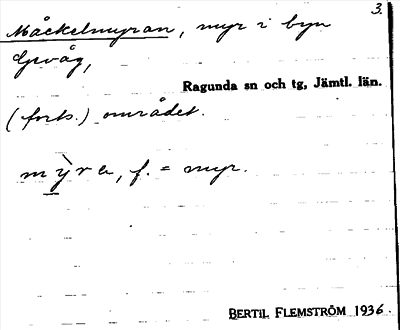 3.
Måckelmyran, myr i byn
Gevåg,
Ragunda sn och tg, Jämtl. län.
(forts.) området.
mỳra, f. = myr.
BERTIL FLEMSTRÖM 1936.